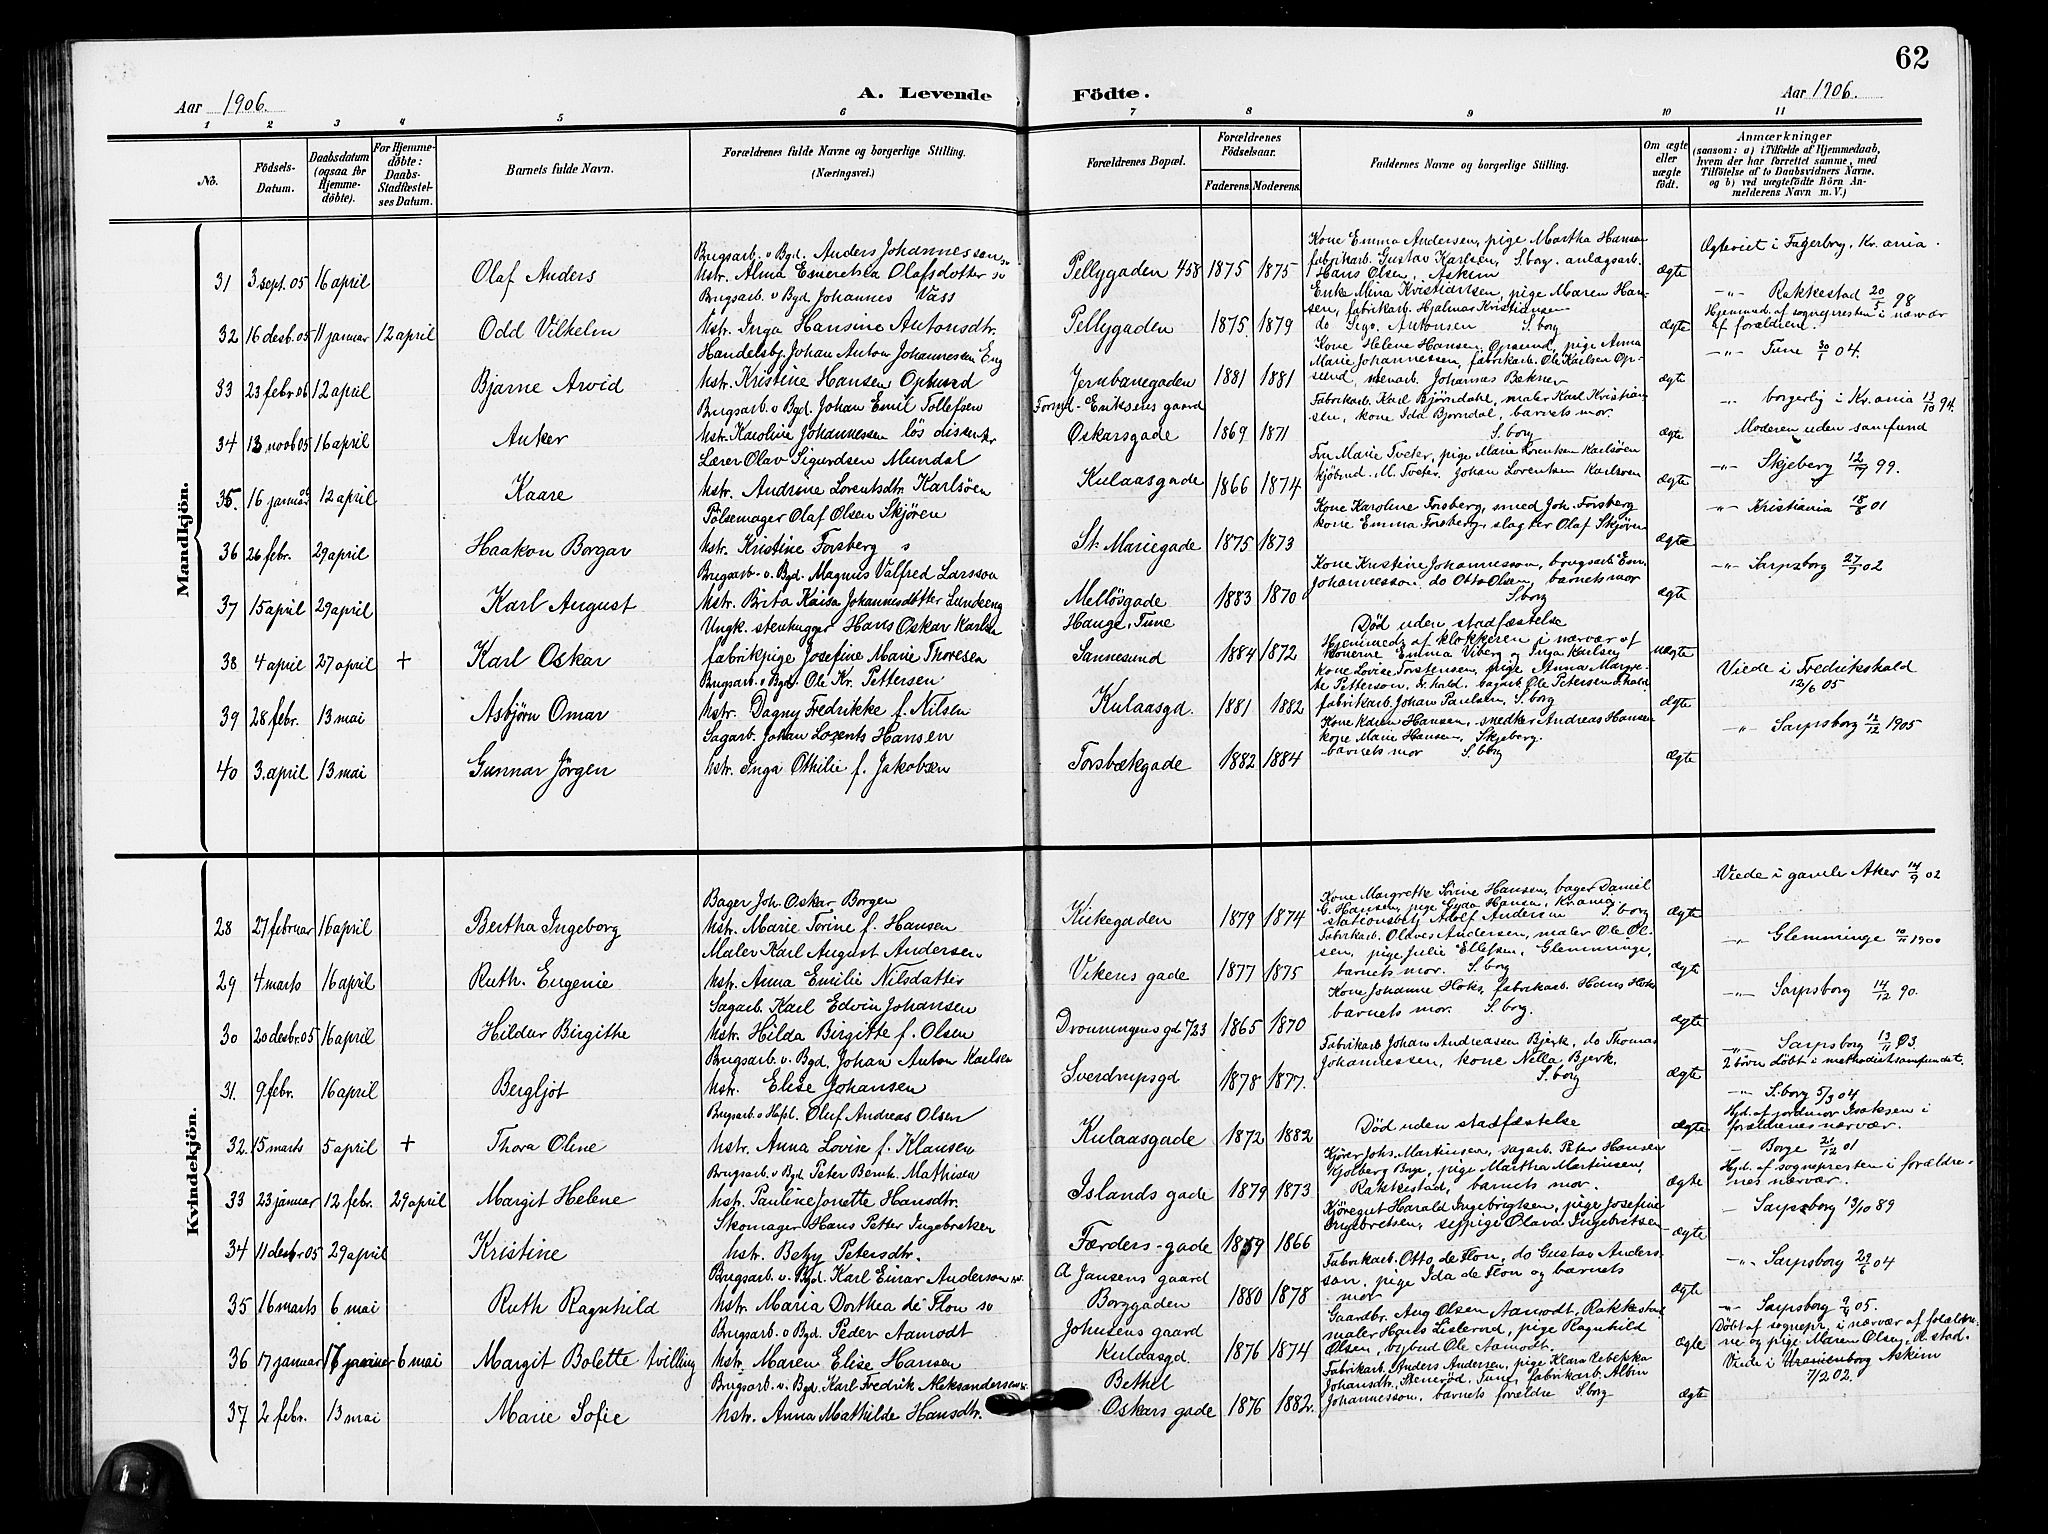 62
Aar 1906.
A. Levende Födte.
Aar 1906.
1 2 3 4 5 6 7 8 9 10 11
No.
Födsels-Datum.
Daabsdatum (ogsaa for Hjemmedöbte).
For Hjemmedöbte: Daabs-Stadfæstelses Datum.
Barnets fulde Navn.
Forældrenes fulde Navne og borgerlige Stilling. (Næringsvei.)
Forældrenes Bopæl.
Forældrenes Födselsaar.
Faderens. Moderens.
Faddernes Navne og borgerlige Stilling.
Om ægte eller uægte födt.
Anmærkninger
(saasom: a) i Tilfælde af Hjemmedaab, hvem der har forrettet samme, med Tilföielse af to Daabsvidners Navne, og b) ved uægtefödte Börn Anmelderens Navn m. V.)
Mandkjön.
31 3 sept. 05 16 april Olaf Anders
Brugsarb. v. Bgd. Anders Johannesson
hstr. Alma Emerentsea Olafsdotter sv
Pellygaden 458 1875 1875
Kone Emma Andersen, pige Martha Hansen
fabrikarb. Gustav Karlsen, S.borg. anlægsarb.
Hans Olsen, Askim
ægte
Ægteviet i Fagerborg, Kr.ania.
32 16 desb. 05 11 januar 12 april Odd Vilhelm
Brugsarb. v. Bgd. Johannes Vass
hstr. Inga Hansine Antonsdtr.
Pellygaden 1875 1879
Enke Mina Kristiansen, pige Maren Hansen, fabrikarb. Hjalmar Kristiansen
do Sigv. Antonsen S.borg
ægte
-"- Rakkestad 20/5 98
Hjemmed. af sognepresten i nærvær af forældren.
33 23 febr. 06 12 april Bjarne Arvid
Handelsbj. Johan Anton Johannessen Eng
hstr. Kristine Hansen Opsund
Jernbanegaden 1881 1881
Kone Helene Hansen, Opsund, pige Anna
Marie Johannessen, fabrikarb. Ole Karlsen Opsund, murarb. Johannes Bekner
ægte
-"- Tune 30/1 04.
34 13 novb 05 16 april Anker
Brugsarb. v. Bgd. Johan Emil Tollefsen
hstr. Karoline Johannessen lös dissenter
Eriksens gaard
Oskarsgade 1869 1871
Fabrikarb. Karl Björndahl, maler Karl Kristiansen, kone Ida Bjorndal, barnets mor.
S.borg
ægte
-"- borgerlig i Kr.ania 13/10 94.
Moderen uden samfund
35. 16 januar 06 12 april Kaare
Lærer Olav Sigurdsen Mundal
hstr. Andrine Lorentsdtr. Karlsöen
Kulaasgade 1866 1874
Fru Marie Tveter, pige Marie Lorentsen Karlsöen
kjöbmd. M. Tveter, Johan Lorentsen Karlsöen
ægte
-"- Skjeberg 12/9 99.
36 26 febr. 29 april Haakon Borgar
Pölsemager Olaf Olsen Skjören
hstr. Kristine Forsberg s
St. Mariegade 1875 1873
Kone Karoline Forsberg, smed Joh. Forsberg
kone Emma Forsberg, slagter Olaf Skjören
ægte
-"- Kristiania 18/8 01
37 15 april 29 april Karl August
Brugsarb. v. Bgd. Magnus Valfred Larsson
hstr. Brita Kaisa Johannesdotter Lundeeng
Mellösgade 1883 1870
Kone Kristine Johannesson, brugsarb. Em.
Johannesson, do Otto Olsen, barnets mor
S.borg
ægte
-"- Sarpsborg 27/9 02
38 4 april 27 april + Karl Oskar
Ungk. stenhugger Hans Oskar Karlsen
fabrikpige Josefine Marie Thoresen
Hauge, Tune
Sannesund 1884 1872
Död uden stadfæstelse
Hjemmed. af klokkeren i nærvær af
konerne Emma Viberg og Inga Karlsen
uægte
39 28 febr. 13 mai Asbjörn Omar
Brugsarb. v. Bgd. Ole Kr. Pettersen
hstr. Dagny Fredrikke f. Nilsen
Kulaasgd. 1881 1882
kone Lovise Torstensen, pige Anna Margrete Petterson, Fr.hald. bagarb. Ole Petersen F.hald.
fabrikarb. Johan Paulsen, S.borg
ægte
Viede i Fredrikshald
12/6 05
40 3. april 13 mai Gunnar Jörgen
Sagarb. Johan Lorents Hansen
hstr. Inga Othilie f. Jakobsen
Torsbækgade 1882 1884
Kone Karen Hansen, snedker Andreas Hansen
kone Marie Hansen, Skjeberg.
barnets mor S.borg
ægte
-"- Sarpsborg 12/12 1905
Kvindekjön.
28 27 februar 16 april Bertha Ingeborg
Bager Joh. Oskar Borgen
hstr. Marie Torine f. Hansen
Kirkegaden 1879 1874
Kone Margrethe Torine Hansen, bager Daniel
G. Hansen, pige Gyda Hansen, Kr.ania
stationsbetj. Adolf Andersen S.borg
ægte
Viede i gamle Aker 14/9 02
29 4 marts 16 april Ruth Eugenie
Maler Karl August Andersen
hstr. Anna Emilie Nilsdatter
Vikens gade 1877 1875
Fabrikarb. Olaves Andersen, maler Ole Olsen, pige Julie Ellefsen, Glemminge,
barnets mor. S.borg
ægte
-"- Glemminge 10/11 1900
30 20 desbr. 05 16 april Hildur Birgithe
Sagarb. Karl Edvin Johansen
hstr. Hilda Birgitte f. Olsen
Dronningens gd 723 1865 1870
Kone Johanne Holos, fabrikarb. Hans Holos
barnets mor. S.borg.
ægte
-"- Sarpsborg 14/12 90.
31. 9 febr. 16 april Bergljót
Brugsarb. v. Bgd. Johan Anton Karlsen
hstr. Elise Johansen
Sverdrupsgd 1878 1877.
Fabrikarb. Johan Andreassen Bjerk, do Thomas
Johannessen, kone Nilla Bjerk.
S.borg
ægte
-"- Sarpsborg 13/11 93.
2 börn döbt i methodistsamfundet.
32. 15 marts 5 april + Thora Oline
Brugsarb. v. Hafsl. Oluf Andreas Olsen
hstr. Anna Lovise f. Klausen
Kulaasgade 1872 1882
Död uden stadfæstelse
ægte
-"- S.borg 5/3 04
Hjd. af jordmor Isaksen i
forældrenes nærvær.
33 23 januar 12 febr. 29 april Margit Helene
Brugsarb. v. Bgd. Peter Bernh. Mathisen
hstr. Pauline Jonette Hansdtr.
Islands gade 1879 1873
Kjörer Johs. Martinsen, sagarb. Peter Hansen
Kjölberg Borge, pige Martha Martinsen,
Rakkestad, barnets mor.
ægte
- Borge 21/12 01
Hjd. af sognepresten i forældrenes nærvær.
34 11 desbr 05 29 april Kristine
Skomager Hans Petter Ingebretsen
hstr. Betzy Petersdtr.
Færders-gade 1859 1866
Kjöregut Harald Ingebrigtsen, pige Josefine
Ingebretsen, sypige Olava Ingebritsen
ægte
- Sarpsborg 13/10 89
35 16 marts 6 mai Ruth Ragnhild
Brugsarb. v. Bgd. Karl Einar Anderson sv.
hstr. Maria Dorthea de Flon sv
A Jansens gaard
Borggaden 1880 1878
Fabrikarb. Otto de Flon, do Gustav Andersson, pige Ida de Flon og barnets
mor
ægte
-"- Sarpsborg 29/6 04
36 17 januar 17 januar 6 mai Margit Bolette tvilling
Brugsarb. v. Bgd. Peder Aamodt
hstr. Maren Elise Hansen
Johnsens gaard
Kulaasgd. 1876 1874
Gaardbr. Aug Olsen Aamodt, Rakkestad
maler Hans Lislerud, pige Ragnhild
Olsen, bybud Ole Aamodt.
ægte
-"- Sarpsborg 9/4 05.
Döbt af sognepr. i nærvær af forældrene og pige Maren Olsen, R.stad.
37 2 febr. 13 mai Marie Sofie
Brugsarb. v. Bgd. Karl Fredrik Aleksandersen
hstr. Anna Mathilde Hansdtr.
Bethel
Oskars gade 1876 1882.
Fabrikarb. Anders Andersen, pige Klara Rebekka
Johansdtr, Stenröd, Tune, fabrikarb. Albin
Johannesson, barnets forældre S.borg
ægte
Viede i Uranienborg Askim
7/2 02.